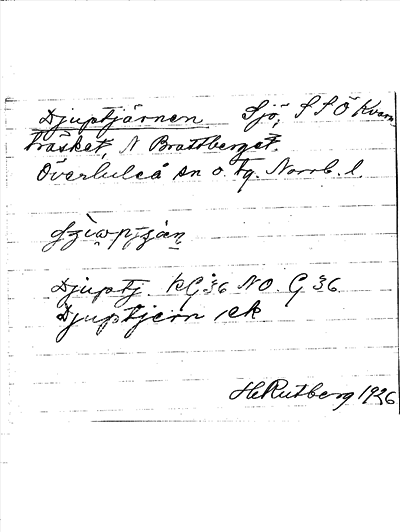 Djuptjärnen Sjö, SSÖ Kvarn
träsket, N Brattberget.
Överluleå sn o. tg. Norrb. l.
Djuptj. kG36 NO. G36
Djuptjern, ek
H Rutberg 1926